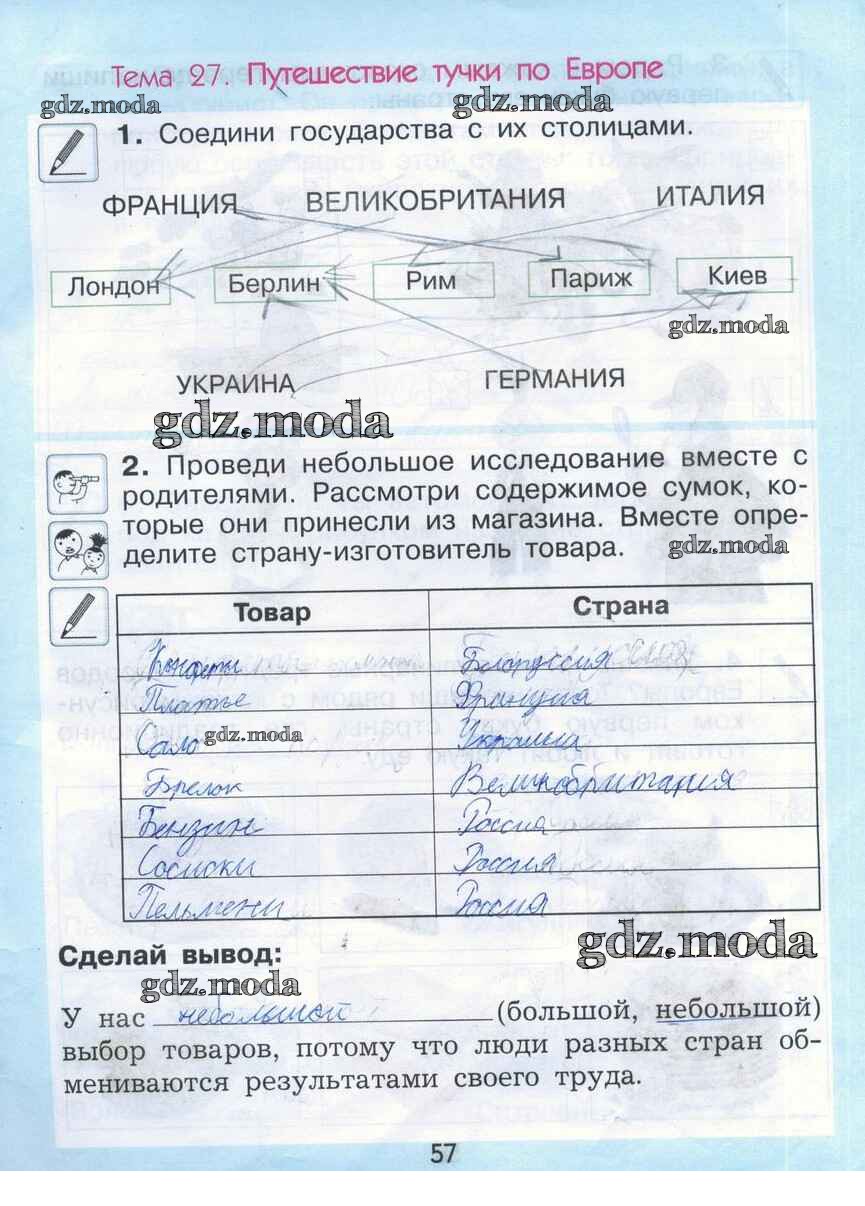 Тема 27. Путешествие тучки по Европе
gdz.moda
gdz.moda
1. Соедини государства с их столицами.
ФРАНЦИЯ ВЕЛИКОБРИТАНИЯ ИТАЛИЯ
Лондон Берлин Рим Париж Киев
gdz.moda
УКРАИНА ГЕРМАНИЯ
gdz.moda
2. Проведи небольшое исследование вместе с
родителями. Рассмотри содержимое сумок, ко-
торые они принесли из магазина. Вместе опре-
делите страну-изготовитель товара.
gdz.moda
Товар Страна
Конфеты Белоруссия
Платье Франция
Сало Украина
gdz.moda
Брелок Великобритания
Бензин Россия
Сосиски Россия
Пельмени Россия
Сделай вывод:
gdz.moda
gdz.moda
У нас небольшой (большой, небольшой)
выбор товаров, потому что люди разных стран об-
мениваются результатами своего труда.
57